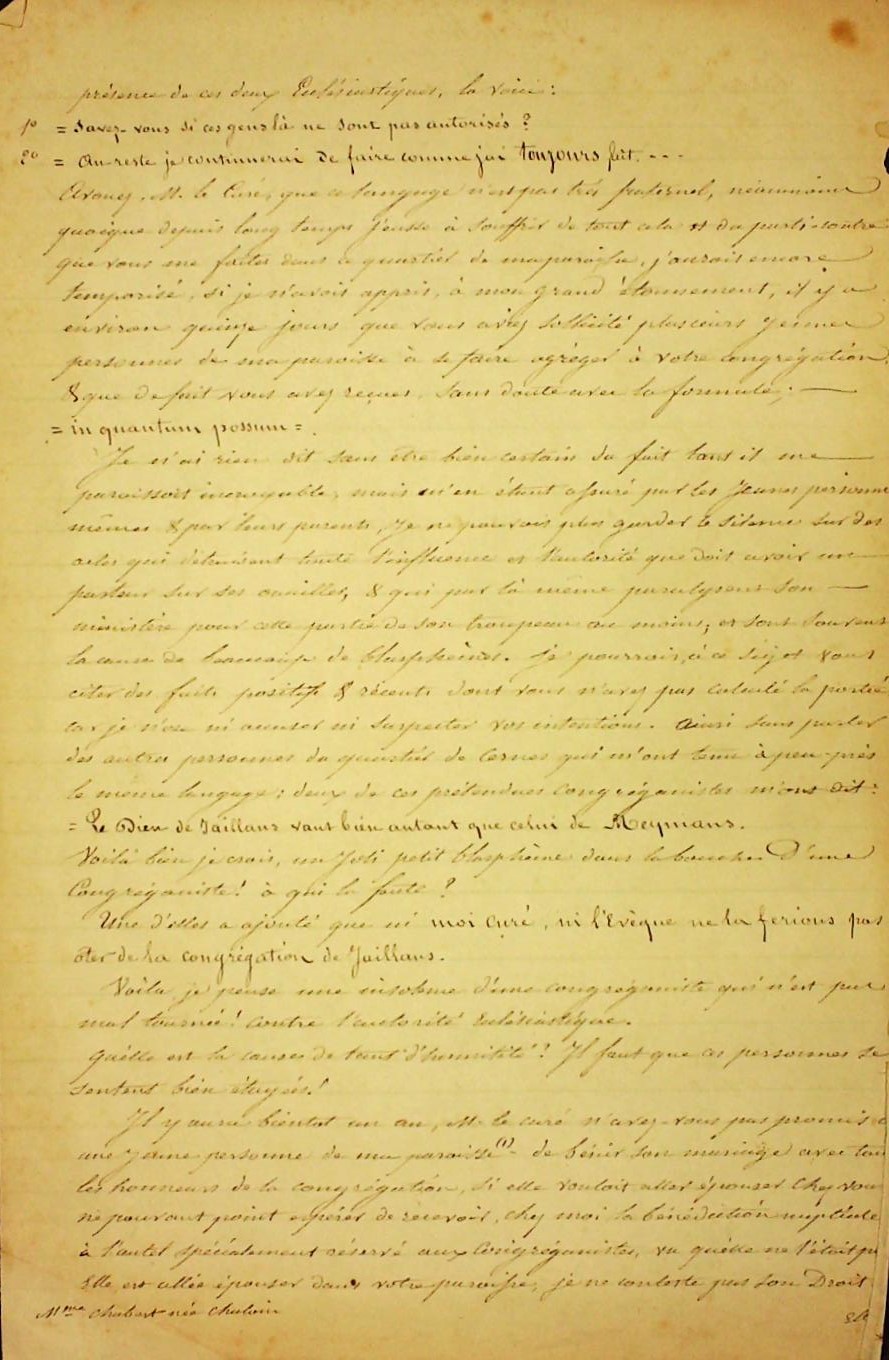 présence de ces deux Ecclésiastiques, la voici:
1º = Savez-vous si ces gens là ne sont pas autorisés?
2º = Au reste je continuerai de faire comme j'ai toujours fait. - - -
Avouez, M. le Curé, que ce langage n'est pas très fraternel, néanmoins
quoique depuis long temps j'eusse à souffrir de tout cela et du parti-contre
que vous me faites dans ce quartier de ma paroisse, j'aurais encore
temporisé, si je n'avois appris, à mon grand étonnement, il y a
environ quinze jours que vous aviez sollicité plusieurs jeunes
personnes de ma paroisse à se faire agréger à votre congrégation,
& que de fait vous avez reçues, sans doute avec la formule:
= in quantum possum =.
Je n'ai rien dit sans être bien certain du fait tant il me
paroissoit incroyable, mais m'en étant assuré par les jeunes personnes
mêmes & par leurs parents, je ne pouvois plus garder le silence sur des
actes qui détruisent toute l'influence et l'autorité que doit avoir un
pasteur sur ses ouailles, & qui par là même paralysent son
ministère pour cette partie de son troupeau au moins; et sont souvent
la cause de beaucoup de blasphèmes. Je pourrois, à ce sujet vous
citer des faits positifs & récents dont vous n'avez pas calculé la portée
car je n'ose ni accuser ni suspecter vos intentions. Ainsi sans parler
des autres personnes du quartier de Cernes qui m'ont tenu à peu-près
le même langage: deux de ces prétendues congréganistes m'ont dit:
= Le Dieu de Jaillans vaut bien autant que celui de Meymans.
Voilà bien je crois, un joli petit blasphème dans la bouche d'une
Congréganiste! à qui la faute?
Une d'elles a ajouté que ni moi curé, ni l'Evêque ne la ferions pas
ôter de la congrégation de Jaillans.
Voilà je pense une insolence d'une congréganiste qui n'est pas
mal tournée! contre l'autorité Ecclésiastique.
Quelle est la cause de tant d'humilité? Il faut que ces personnes se
sentent bien étayées!
Il y aura bientôt un an, M. le curé n'avez-vous pas promis à
une jeune personne de ma paroisse (1) de bénir son mariage avec tous
les honneurs de la congrégation, si elle vouloit aller épouser chez vous
ne pouvant point espérer de recevoir, chez moi la bénédiction nuptiale
à l'autel spécialement réservé aux Congréganistes, vu qu'elle ne l'était pas
Elle est allée épouser dans votre paroisse, je ne conteste pas son Droit
Mme Chabert née Chaloin